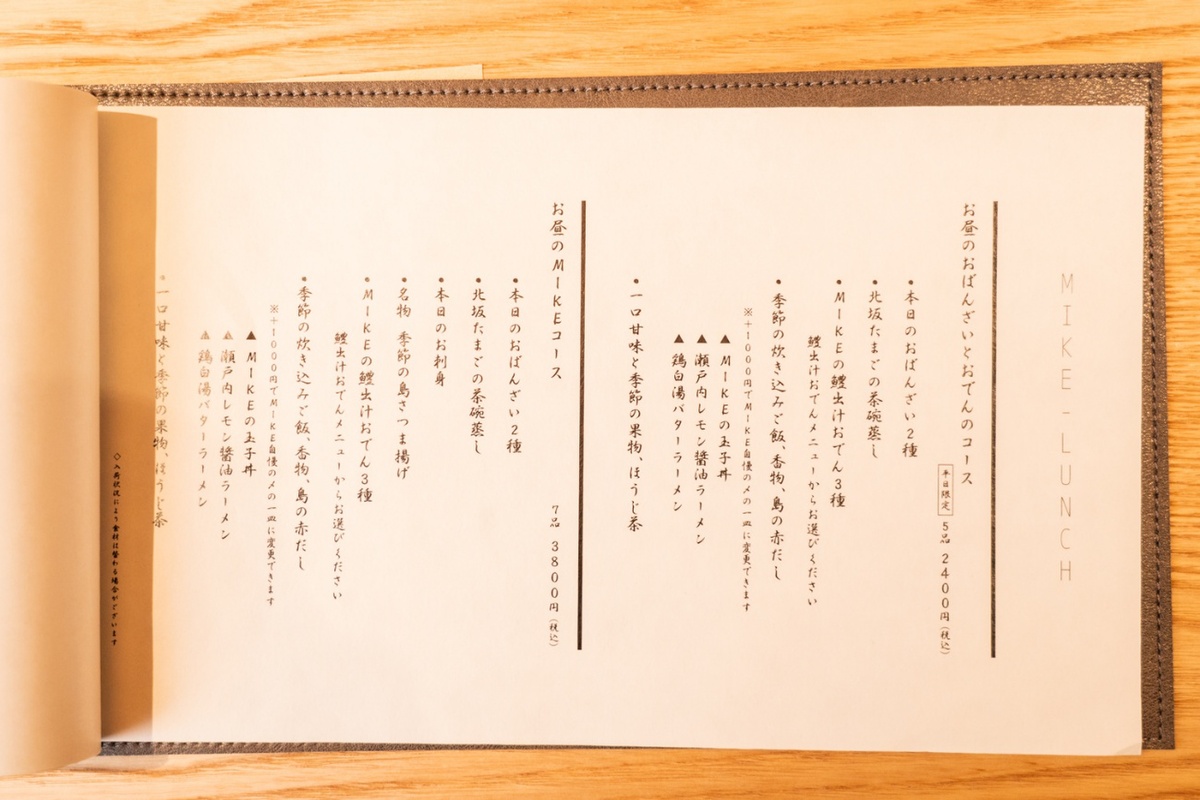 MIKE-LUNCH
お昼のおばんざいとおでんのコース
平日限定 5品 2400円(税込)
・本日のおばんざい2種
・北坂たまごの茶碗蒸し
・MIKEの鰹出汁おでん3種
鰹出汁おでんメニューからお選びください
・季節の炊き込みご飯、香物、鳥の赤だし
※+100円でMIKE自慢の〆の一皿に変更できます
▲MIKEの玉子丼
▲瀬戸内レモン醤油ラーメン
▲鶏白湯バターラーメン
・一口甘味と季節の果物、ほうじ茶
お昼のMIKEコース
7品 3800円(税込)
・本日のおばんざい2種
・北坂たまごの茶碗蒸し
・本日のお刺身
・名物 季節の鳥さつま揚げ
・MIKEの鰹出汁おでん3種
鰹出汁おでんメニューからお選びください
・季節の炊き込みご飯、香物、鳥の赤だし
※+100円でMIKE自慢の〆の一皿に変更できます
▲MIKEの玉子丼
▲瀬戸内レモン醤油ラーメン
▲鶏白湯バターラーメン
・一口甘味と季節の果物、ほうじ茶
◇入荷状況により食材は替わる場合がございます